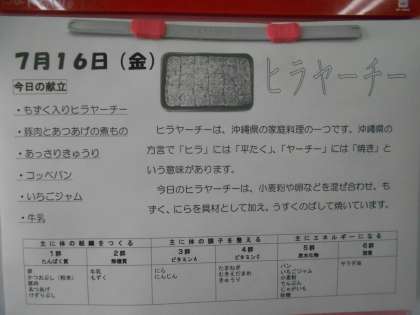 7月16日（金）
ヒラヤーチー
今日の献立
・もずく入りヒラヤーチー
・豚肉とあつあげの煮もの
・あっさりきゅうり
・コッペパン
・いちごジャム
・牛乳
ヒラヤーチーは、沖縄県の家庭料理の一つです。沖縄県の
方言で「ヒラ」には「平たく」、「ヤーチー」には「焼き」と
いう意味があります。
今日のヒラヤーチーは、小麦粉や卵などを混ぜ合わせ、も
ずく、にらを具材として加え、うすくのばして焼いています。
主に体の組織をつくる 主に体の調子を整える 主にエネルギーになる
1群 2群 3群 4群 5群 6群
たんぱく質 無機質 ビタミンA ビタミンC 炭水化物 脂質
卵 牛乳 にら たまねぎ パン サラダ油
かつおぶし（粉末） もずく にんじん むきえだまめ いちごジャム
豚肉 きゅうり 小麦粉
あつあげ でんぷん
けずりぶし じゃがいも
砂糖